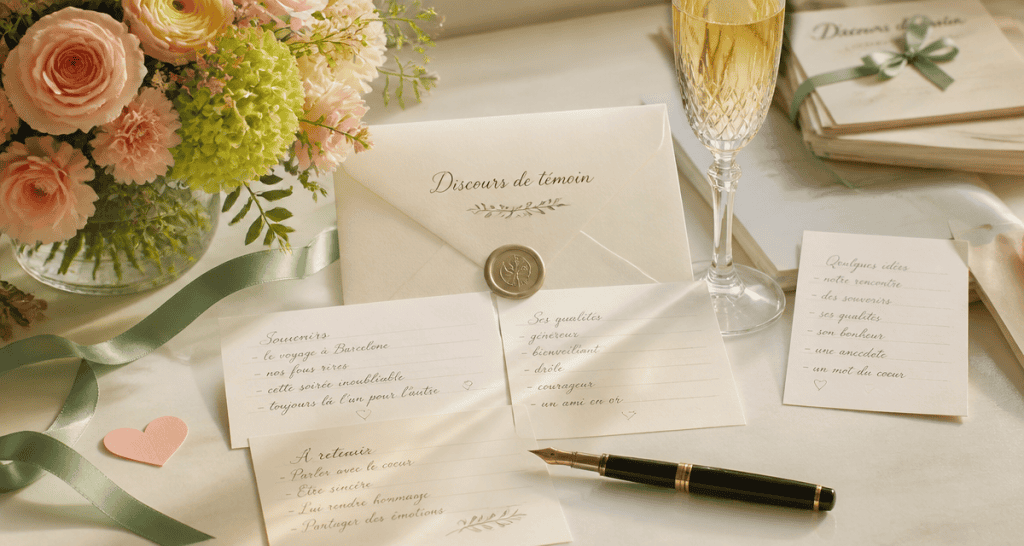 Discours de témoin
Discours de
Souvenirs
- le voyage à Barcelone
- nos fous rires
- cette soirée inoubliable
- toujours là l'un pour l'autre
Ses qualités
- généreux
- bienveillant
- drôle
- courageux
- un ami en or
Quelques idées
- notre rencontre
- des souvenirs
- ses qualités
- son bonheur
- une anecdote
- un mot du coeur
À retenir
- Parler avec le coeur
- Être sincère
- Lui rendre hommage
- Partager des émotions